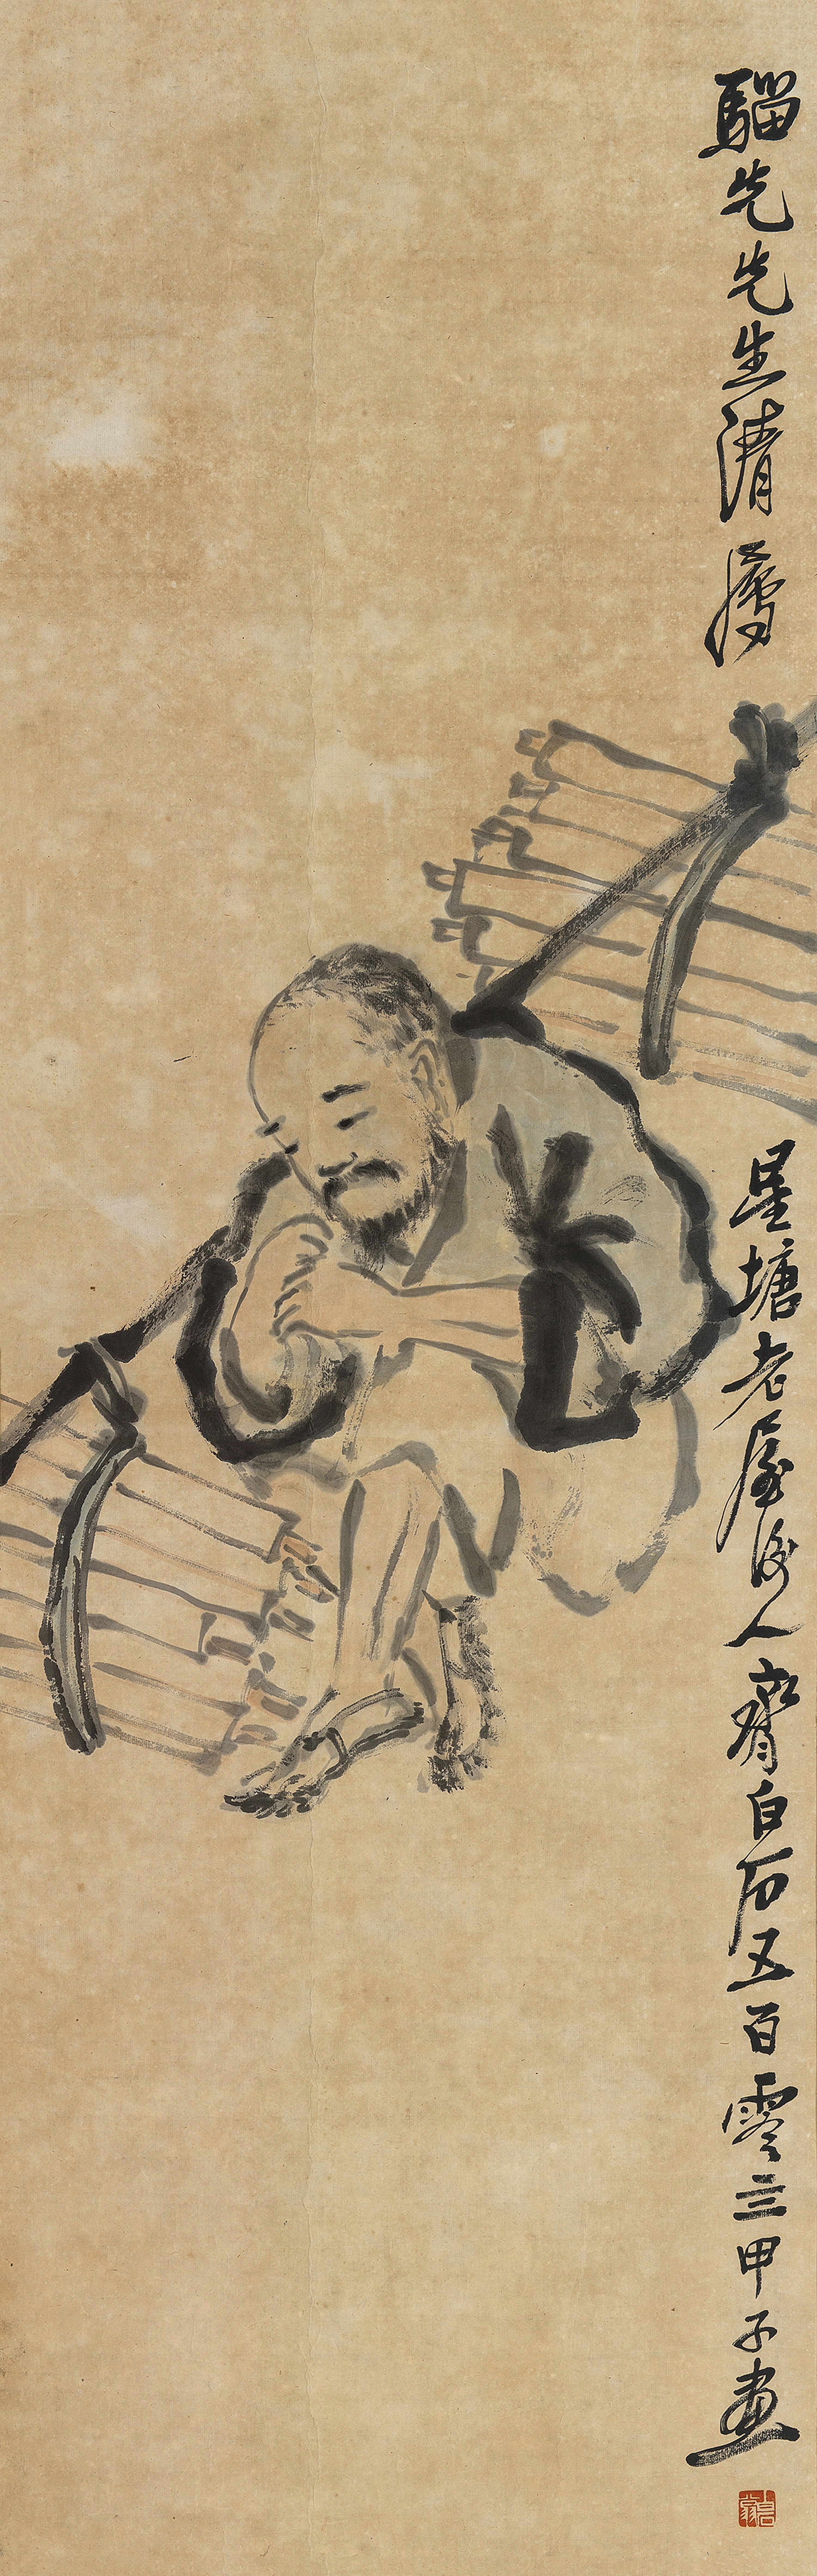 騮先先生清屬
星塘老屋後人齊白石五百零三甲子畫